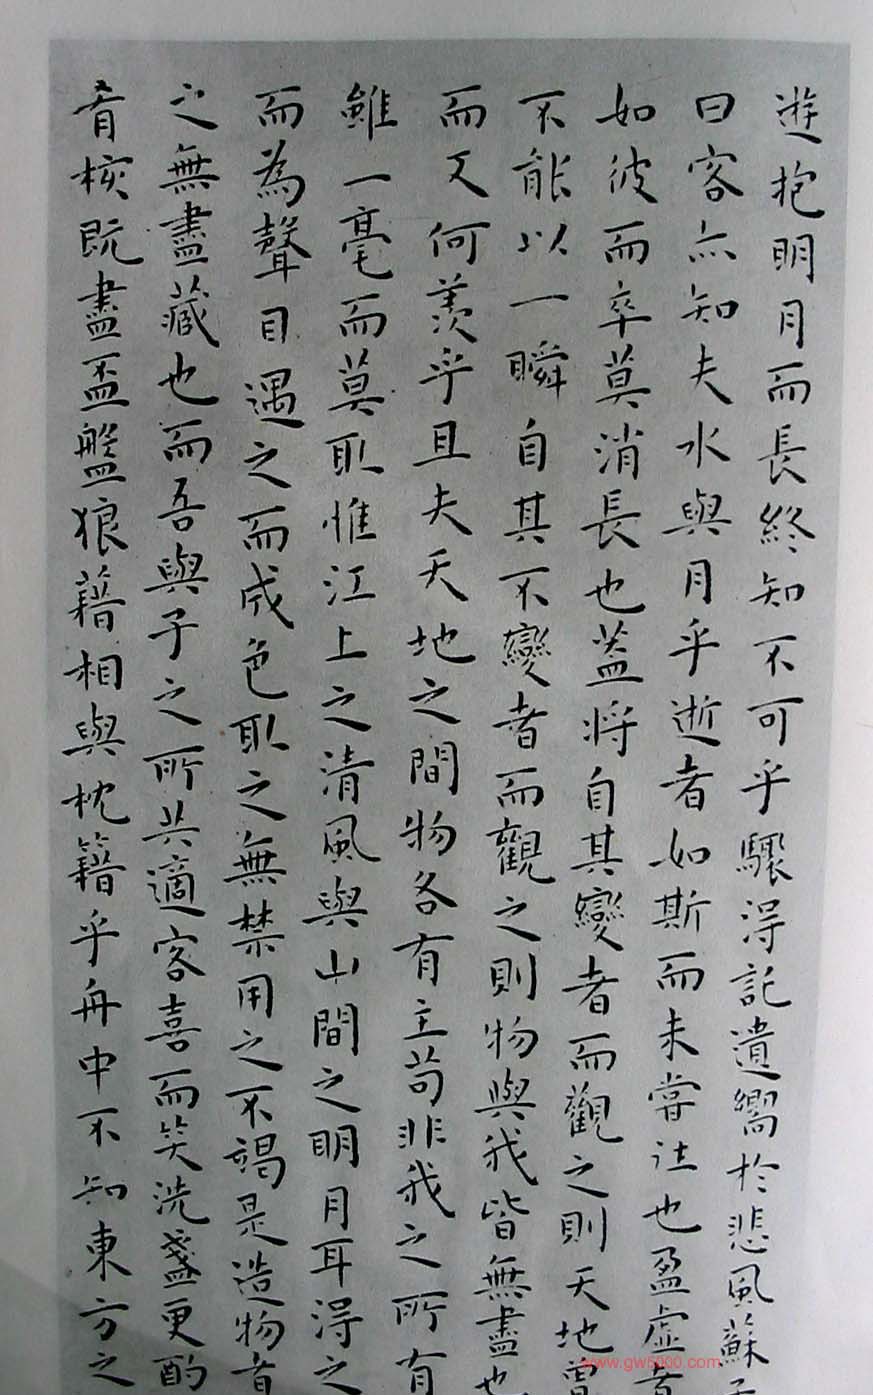 遊抱明月而長終知不可乎驟得託遺嚮於悲風蘇子
曰客亦知夫水與月乎逝者如斯而未嘗往也盈虛者
如彼而卒莫消長也蓋將自其變者而觀之則天地曾
不能以一瞬自其不變者而觀之則物與我皆無盡也
而又何羨乎且夫天地之間物各有主苟非我之所有
雖一毫而莫取惟江上之清風與山間之明月耳得之
而為聲目遇之而成色取之無禁用之不竭是造物者
之無盡藏也而吾與子之所共適客喜而笑洗盞更酌
肴核既盡盃盤狼藉相與枕籍乎舟中不知東方之
www.gw5000.com